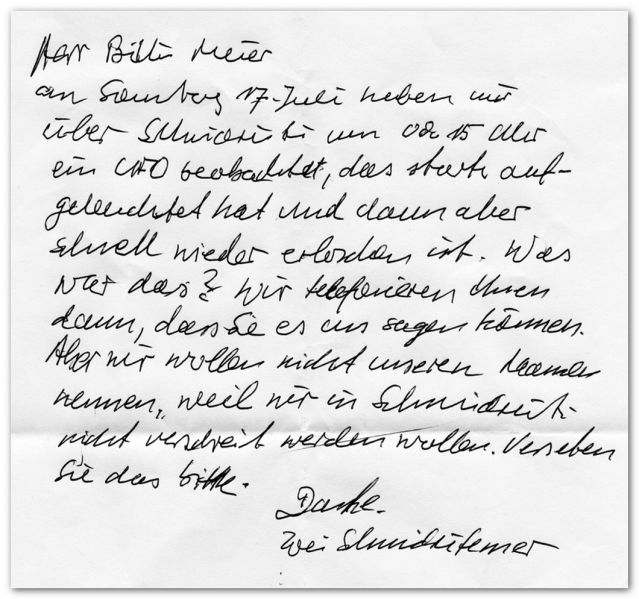 Herr Billi Meier
am Samstag 17. Juli haben wir
über Schmidrüti um 02 15 Uhr
ein UFO beobachtet, das stark auf-
geleuchtet hat und dann aber
schnell wieder erloschen ist. Was
war das? Wir telefonieren Ihnen
dann, dass Sie es uns sagen können.
Aber wir wollen nicht unseren Namen
nennen, weil wir in Schmidrüti
nicht verschreit werden wollen. Verseben
Sie das bitte.
Danke.
Zwei Schmidrütemer